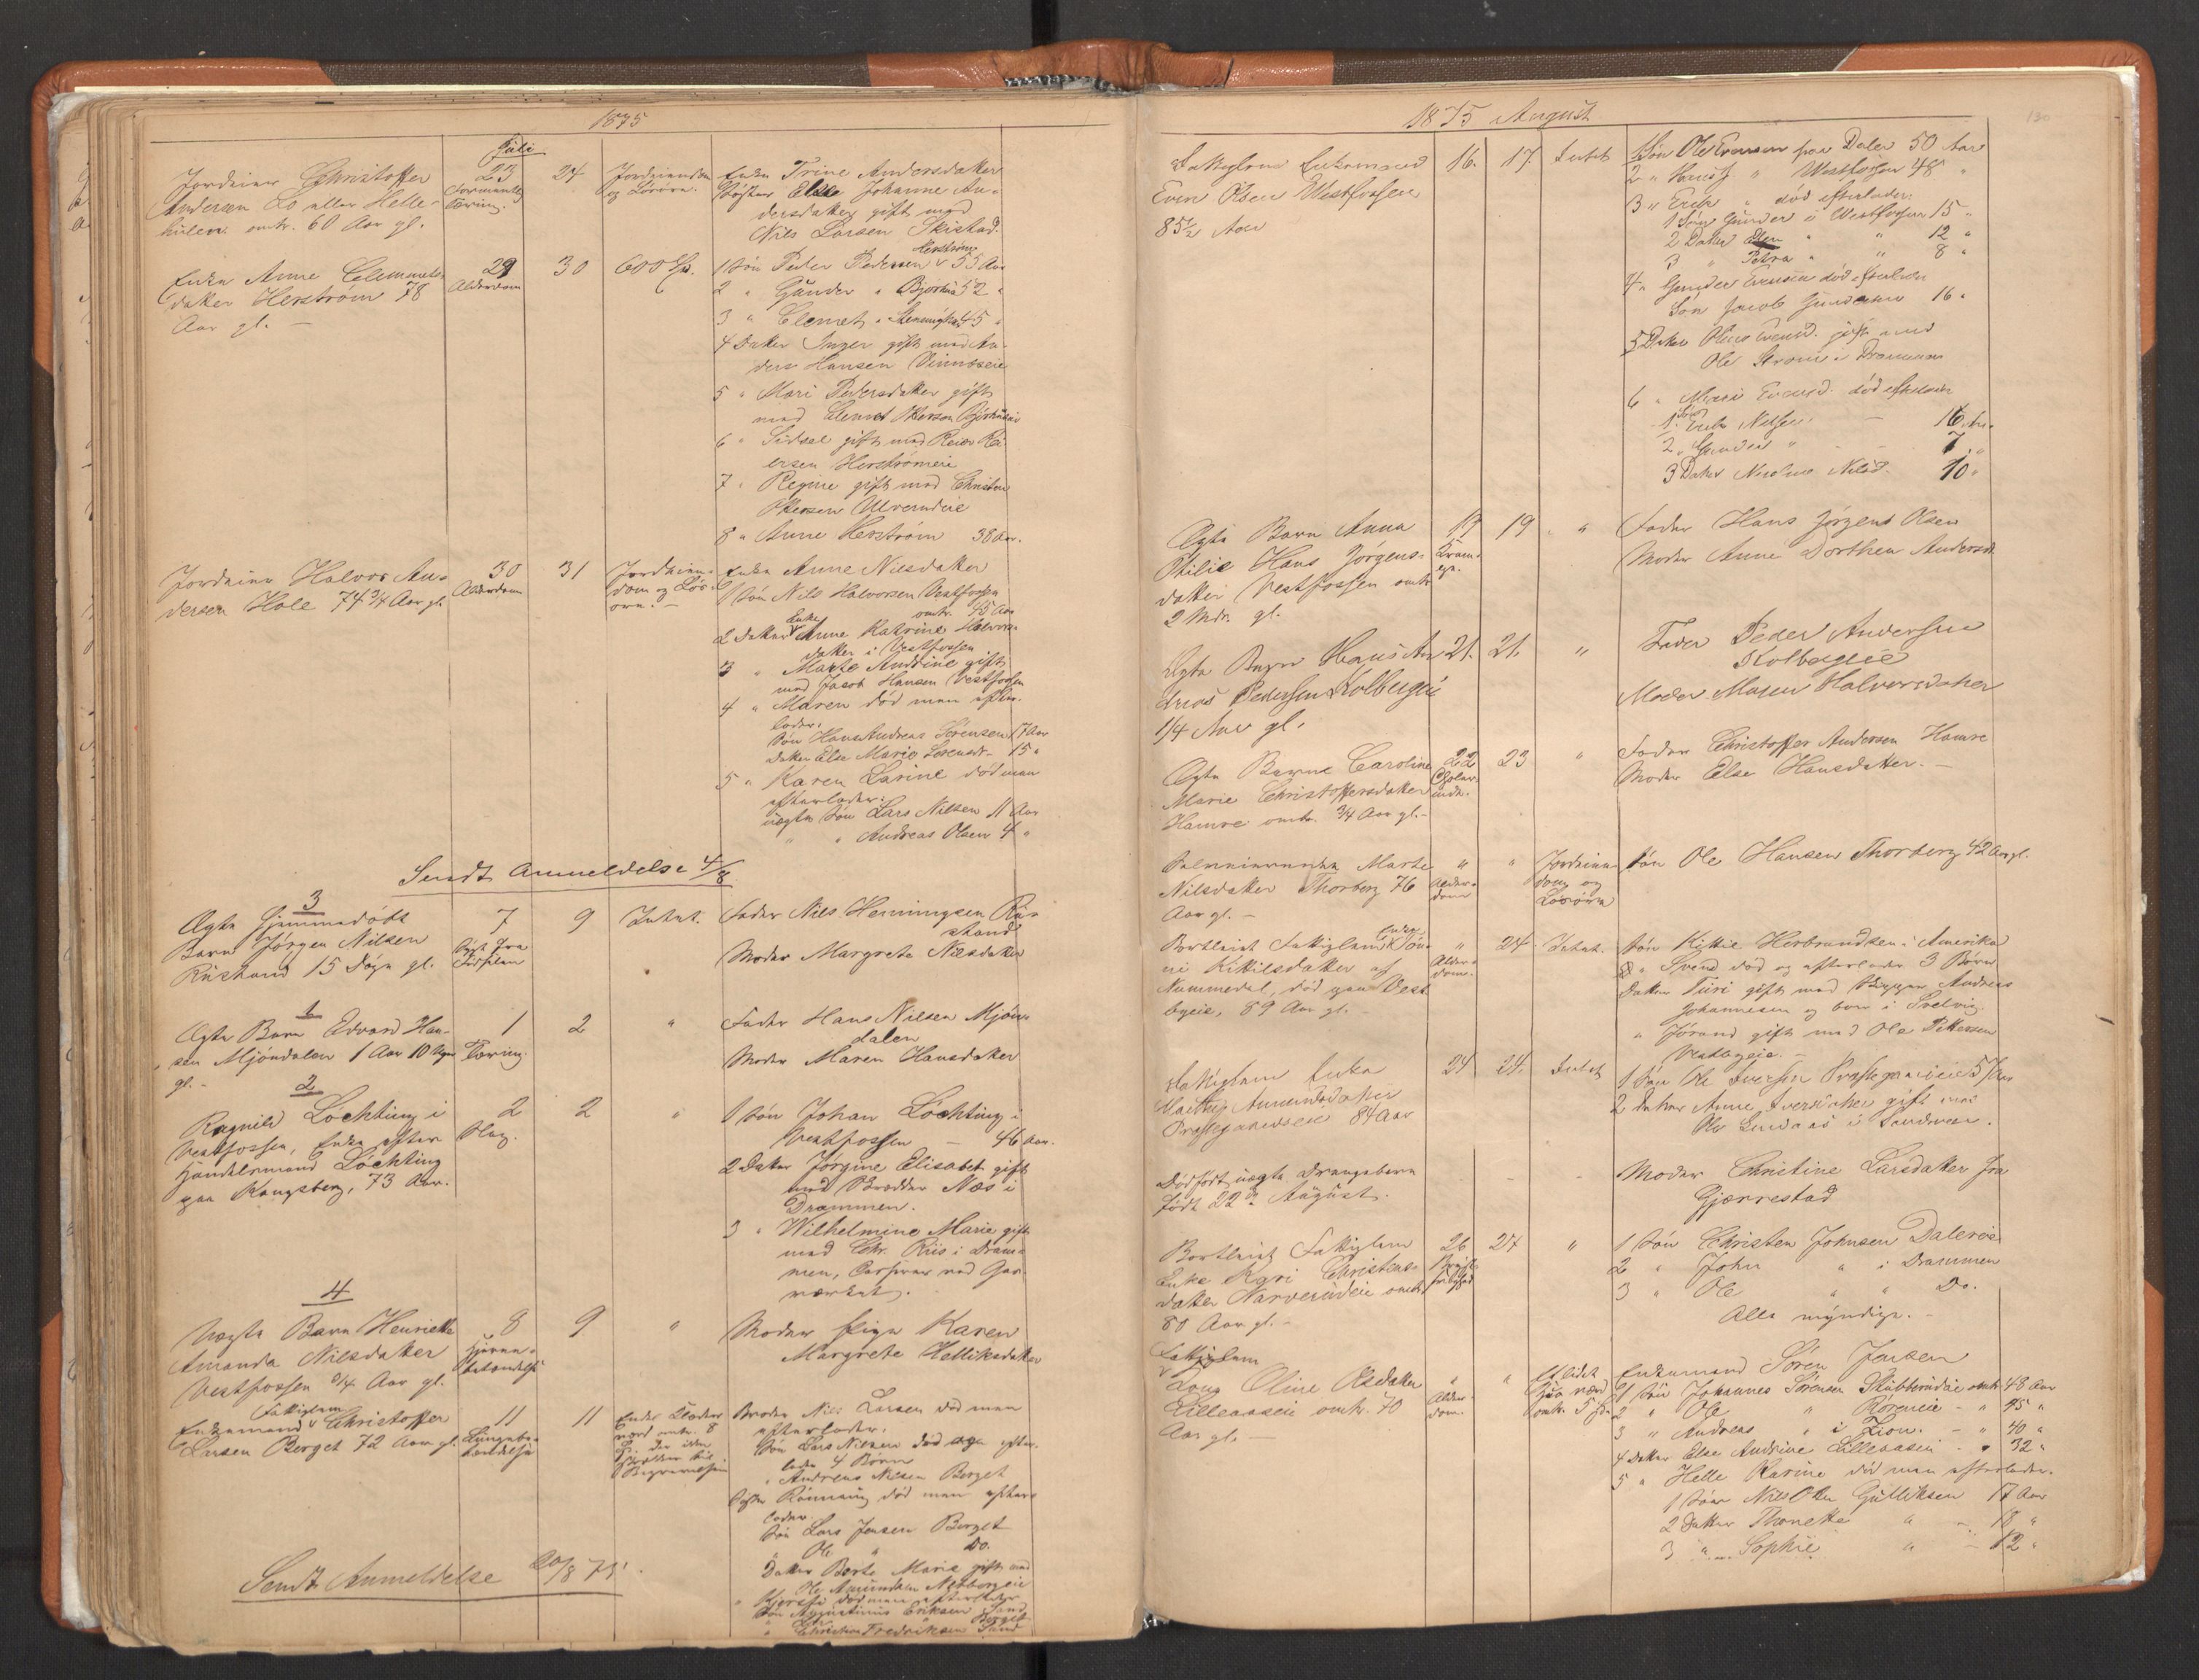 1875
Juli
Jordeier Christoffer
Andersen Lo eller Helle-
hulen omtr. 60 Aar gl.
23
Tæring.
24
Jordeiendom
og Løsøre.
Enke Trine Andersdatter
Søster Else Johanne An-
dersdatter gift med
Nils Larsen Skistad.
Enke Anne Clemmets-
datter Herstrøm 78
Aar gl. —
29
Alderdom
30
600 Spd.
Herstrøm
1 Søn Peder Pedersen 55 Aar
2 " Gunder " 52 "
3 " Clemet " 45 "
4 Datter Inger gift med An-
ders Hansen
5 " Mari Pedersdatter gift
med Clemet Ottersen
6 " Sidsel gift med Reier Rei-
ersen Herstrømeie
7 " Regine gift med Christen
Ottersen Ulverudeie
8 " Anne Herstrøm 38 Aar.
Jordeier Halvor An-
dersen Hole 74 3/4 Aar gl.
30
Alderdom
31
Jordeien-
dom og Løs-
øre. —
Enke Anne Nilsdatter
1 Søn Nils Halvorsen Vestfossen
omtr. 45 Aar
Enke
2 Datter Anne Katrine Halvors-
datter i Vestfossen
3 " Marte Andrine gift
med Jacob Hansen Vestfossen
4 " Maren død men efter-
lader:
Søn Hans Andreas Sørensen 17 Aar
Datter Else Marie Sørensdr. 15 "
5 " Karen Larine død men
efterlader:
uægte Søn Lars Nilsen 11 Aar
" " Andreas Olsen 4 "
Sendt Anmeldelse 4/8
3
Ægte hjemmedøbt
Barn Jørgen Nilsen
Rustand 15 Døgn gl.
7
Fødselen
9
Intet.
Fader Nils Henningsen Ru-
stand
Moder Margrete Nilsdatter
1
Ægte Barn Edvard Han-
sen Mjøndalen 1 Aar 10 Uger
gl. -
1
Tæring.
2
"
Fader Hans Nilsen Mjøn-
dalen
Moder Maren Hansdatter
2
Ragnild Løchting i
Vestfossen, Enke efter
Handelsmand Løchting
paa Kongsberg, 73 Aar.
2
Slag.
2
"
1 Søn Johan Løchting i
Vestfossen — 46 Aar.
2 Datter Jørgine Elisabet gift
med Næs i
Drammen.
3 " Wilhelmine Marie gift
med Chr. Riis i Dram-
men, Casserer ved Gas-
værket.
4
Uægte Barn Henriette
Amanda Nilsdatter
Vestfossen 3/4 Aar gl.
8
Hjerne-
betændelse
9
"
Moder Pige Karen
Margrete Helliksdatter
Fattiglem
Enkemand Christoffer
Larsen Berget 72 Aar gl.
11
Lungebe-
tændelse
11
Broder Nils Larsen død men
efterlader:
Søn Lars Nilsen død og efter-
lader 4 Børn
" Andreas Nilsen Berget
Søster Rønnaug død men efter-
lader
Søn Lars Jensen Berget
" Ole " Do.
Datter Berte Marie gift med
Ole Amundsen
" Kjersti død men efterlader
Søn Augustinus Eriksen Sand
" Christian Fredriksen Sand
Sendt Anmeldelse 20/8 75.
130
1875 August
Fattiglem Enkemand
Even Olsen Vestfossen
85 1/2 Aar
16.
17
Intet
1 Søn Ole Evensen paa Daler 50 Aar
2 " " Vestfossen 48 "
3 " Erik " død efterlader:
1 Søn Gunder i Vestfossen 15 "
2 Datter Ellen " " 12 "
3 " Petra " " 8 "
4 " Gunder Evensen død efterlader
Søn Jacob Gundersen 16 "
5 Datter Evensd. gift med
Ole Strøm i Drammen
6 " Mari Evensd. død efterlader
1 Søn Erik Nilsen — 16 Aar
2 " Gunder " - - 7 "
3 Datter Nilsd. 10 "
Ægte Barn Anna
Otilie Hans Jørgens-
datter Vestfossen omtr
2 Mdr. gl.
17
Kram-
pe.
19
"
Fader Hans Jørgens Olsen
Moder Anne Dorthea Andersd.
Ægte Barn Hans An-
dreas Pedersen Kolbergeie
1/4 Aar gl.
21.
21.
"
Fader Peder Andersen
Kolbergeie
Moder Maren Halvorsdatter
Ægte Barn Caroline
Marie Christoffersdatter
Hamre omtr. 3/4 Aar gl. -
22
Choler-
ine.
23
"
Fader Christoffer Andersen Hamre
Moder Else Hansdatter. —
Marte
Nilsdatter Thorberg 76
Aar gl. —
"
Alder-
dom
"
Jordeien-
dom og
Løsøre
Søn Ole Hansen Thorberg 42 Aar gl.
Enke
Bortleiet Fattiglem Jøn-
ni Kittilsdatter af
Nummedal, død paa Vest-
byeie, 89 Aar gl. -
"
Alder-
dom.
24
Intet.
Søn Kittil Herbrandsen i Amerika
" Svend død og efterlader 3 Børn
Datter Turi gift med Andreas
Johannesen og bor i Svelvig.
" Jørand gift med Ole Pettersen
Vestbyeie. —
Fattiglem Enke
Amundsdatter
Præstegaardseie 84 Aar
24
24.
Intet
1 Søn Ole Iversen Præstegaardseie 51 Aar
2 Datter Anne Iversdatter gift med
Ole i Sandsvær.
Dødfødt uægte Drengebarn
født 22de August.
-
-
-
Moder Christine Larsdatter fra
Gjærrestad
Bortleiet Fattiglem
Enke Kari Christens-
datter Narverudeie omtr
80 Aar gl. -
26
27
"
1 Søn Christen Johnsen Daleröe
2 " John " i Drammen
3 " Ole " " Do.
Alle myndige. —
Fattiglem
Kone Oline Olsdatter
Lilleaaseie omtr. 70
Aar gl. —
"
Alder-
dom.
"
Enkemand Søren Jensen
1 Søn Johannes Sørensen Stubberudeie omtr 48 Aar
2 " Ole " - " 45 "
3 " Andreas " i Zion. - " 40 "
4 Datter Else Andrine Lilleaaseie - " 32 "
5 " Helle Karine død men efterlader.
1 Søn Nils Olin Gulliksen 17 Aar
2 Datter Thonette " -
3 " Sophie " - 12 "